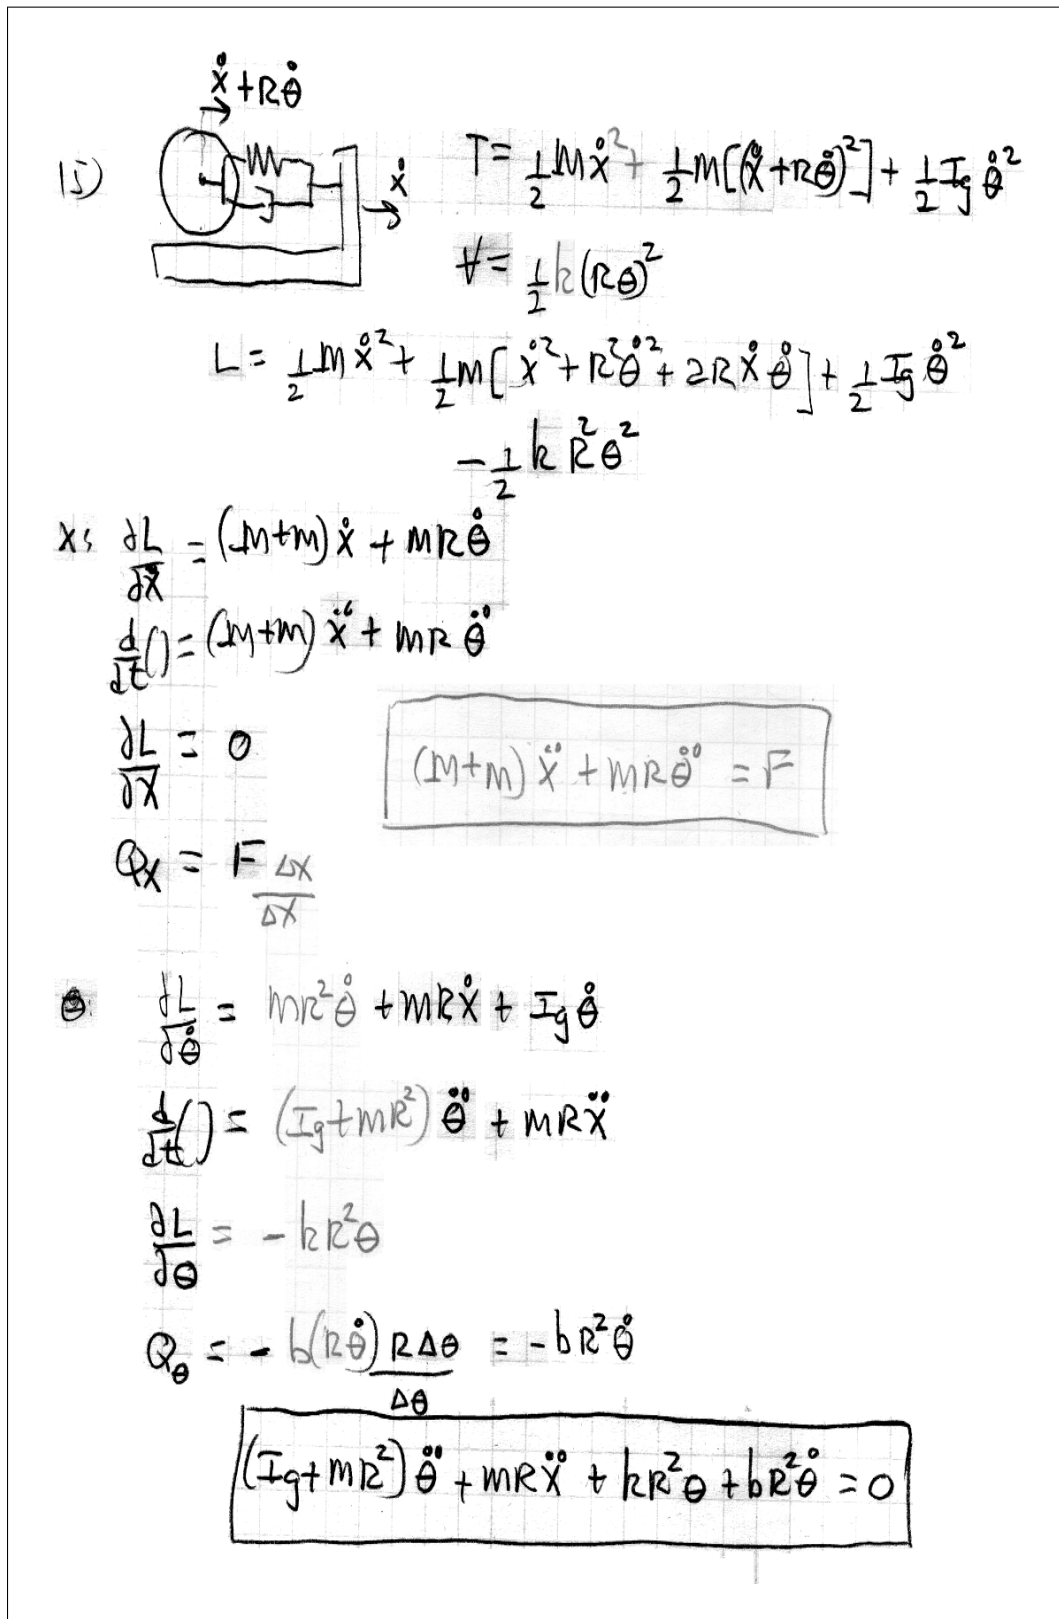 ẋ + Rθ̇
15)
ẋ
T = 1/2 Mẋ² + 1/2 m[(ẋ + Rθ̇)²] + 1/2 Ig θ̇²
V = 1/2 k(Rθ)²
L = 1/2 Mẋ² + 1/2 m[ẋ² + R²θ̇² + 2Rẋθ̇] + 1/2 Ig θ̇²
- 1/2 k R²θ²
x: ∂L/∂ẋ = (M+m)ẋ + mRθ̇
d/dt() = (M+m)ẍ + mRθ̈
∂L/∂x = 0
(M+m)ẍ + mRθ̈ = F
Qx = F Δx/Δx
θ: ∂L/∂θ̇ = mR²θ̇ + mRẋ + Ig θ̇
d/dt() = (Ig + mR²)θ̈ + mRẍ
∂L/∂θ = - kR²θ
Qθ = - b(Rθ̇) RΔθ/Δθ = - bR²θ̇
(Ig + mR²)θ̈ + mRẍ + kR²θ + bR²θ̇ = 0